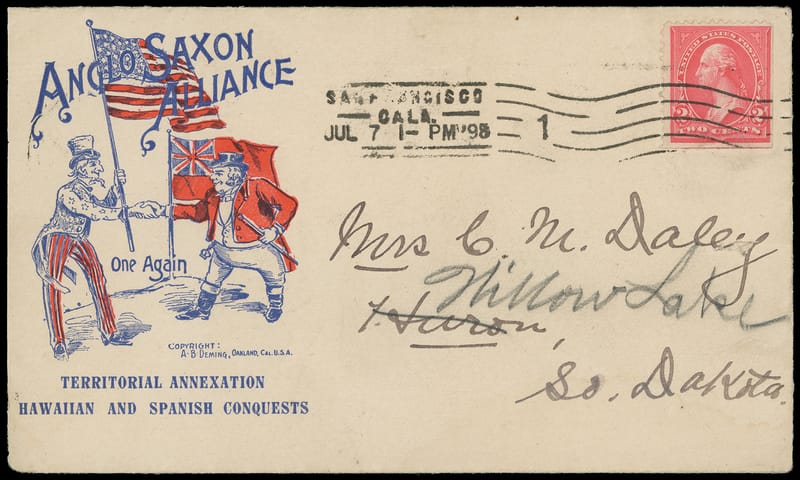 ANGLO SAXON
ALLIANCE
One Again
COPYRIGHT:
A·B·DEMING, OAKLAND, CAL. U.S.A.
TERRITORIAL ANNEXATION
HAWAIIAN AND SPANISH CONQUESTS
SAN FRANCISCO
CALA.
JUL 7 1- PM '98
1
UNITED STATES POSTAGE
2 2
TWO CENTS
Mrs C. M. Daley
Willow Lake
Huron,
So. Dakota.